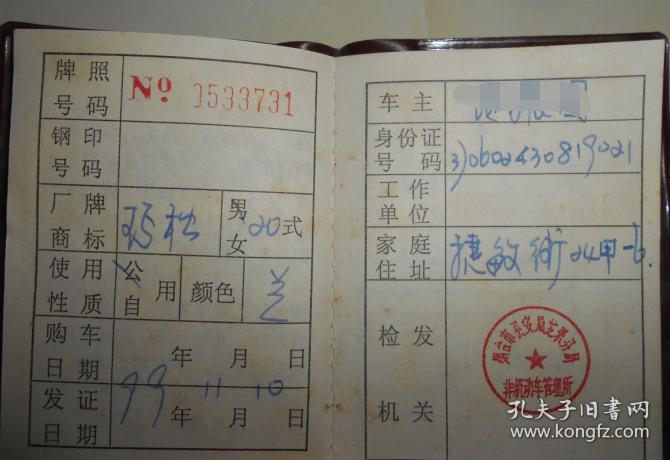 牌照号码
№ 0533731
钢印号码
厂牌商标
男女 20式
使用性质
公自用
颜色
兰
购车日期
年 月 日
发证日期
99年11月10日
车主
身份证号码
370602430819021
工作单位
家庭住址
捷敏街24甲-6
检发机关
烟台市公安局芝罘分局
非机动车管理所
孔夫子旧书网
www.kongfz.com